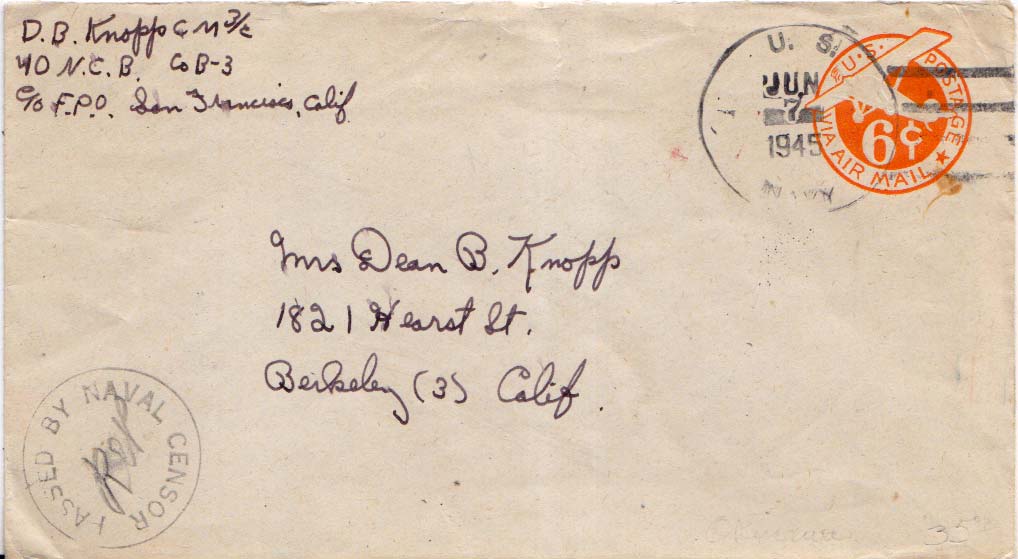 D. B. Knopp C M 3/c
40 N. C. B. Co B-3
c/o F.P.O. San Francisco, Calif
U. S.
JUN
7
1945
NAVY
U. S. POSTAGE
6¢
VIA AIR MAIL
Mrs Dean B. Knopp
1821 Hearst St.
Berkeley (3) Calif.
PASSED BY NAVAL CENSOR